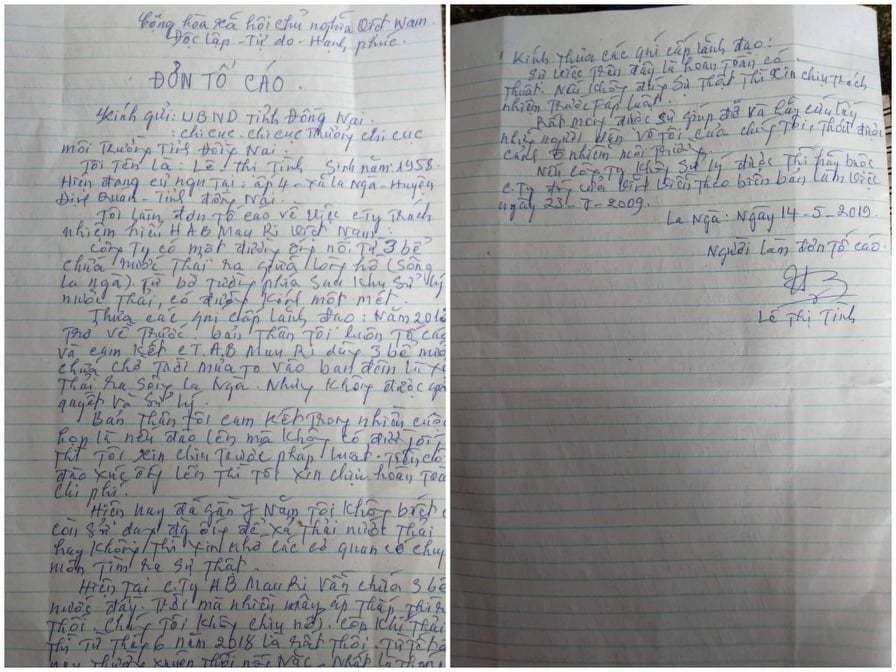 Cộng hòa xã hội chủ nghĩa Việt Nam
Độc lập - Tự do - Hạnh phúc.
ĐƠN TỐ CÁO.
Kính gửi: UBND Tỉnh Đồng Nai.
: chi cục. chi cục trưởng chi cục
môi trường Tỉnh Đồng Nai.
Tôi tên là: Lê thị Tình Sinh năm: 1958.
Hiện đang cư ngụ tại. ấp 4 - xã La Ngà - Huyện
Định Quán - Tỉnh đồng Nai.
Tôi làm đơn tố cáo về việc c.ty trách
nhiệm hiệu HAB Mau Ri Việt Nam:
Công Ty có một đường ống nối. Từ 3 bể
chứa nước thải ra giữa lòng hồ (sông
la ngà). Từ bờ tường phía sau khu sử lý
nước thải, có đường kính một mét.
Thưa các quí cấp lãnh đạo: Năm 201
trở về trước. bản thân tôi luôn tố cáo
và cam kết c.T. A.B Mau Ri dùng 3 bể
chứa chờ trời mưa to vào ban đêm là
thải ra sông la Ngà. Nhưng không được
quyết và sử lý.
Bản thân tôi cam kết trong nhiều cuộc
họp là nếu đào lên mà không có
thì tôi xin chịu trước pháp luật.
đào xúc ống lên thì tôi xin chịu hoàn toàn
chi phí.
Hiện nay đã gần 7 Năm tôi không biết
còn sử dụng ống để xả thải nước thải
hay không thì xin nhờ các cơ quan có
môn tìm ra sự thật.
Hiện Tại c.Ty AB Mau Ri vẫn chứa 3 bể
nước đầy. Trời mà nhiều mây áp thấp thì
thối. chúng tôi không chịu nổi. còn khí thải
thì Từ tháng 6 năm 2018 là rất thối.
thường xuyên thối nồng nặc. Nhất là
Kính thưa các quí cấp lãnh đạo:
Sự việc trên đây là hoàn toàn có
thật. Nếu không đúng sự thật thì xin chịu trách
nhiệm trước pháp luật.
Rất mong được sự giúp đỡ và hãy cứu lấy
những người dân vô tội của chúng tôi, thoát được
cảnh ô nhiễm môi trường.
Nếu công ty không sử lý được thì hãy buộc
c.ty đóng cửa vĩnh viễn theo biên bản làm việc
ngày 23-7-2009.
La Ngà: Ngày 14-5-2019.
Người làm đơn tố cáo.
Lê Thị Tình